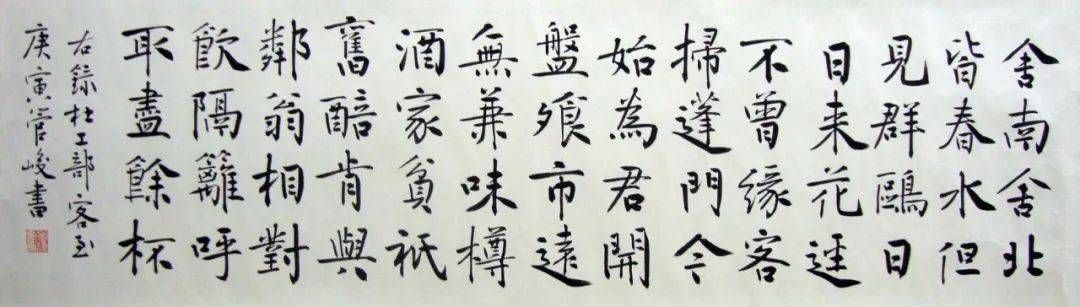 舍南舍北
皆春水但
見群鷗日
日来花逕
不曾緣客
掃蓬門今
始為君開
盤飱市遠
無兼味樽
酒家貧衹
舊醅肯與
鄰翁相對
飲隔籬呼
取盡餘杯
右錄杜工部客至
庚寅管峻書